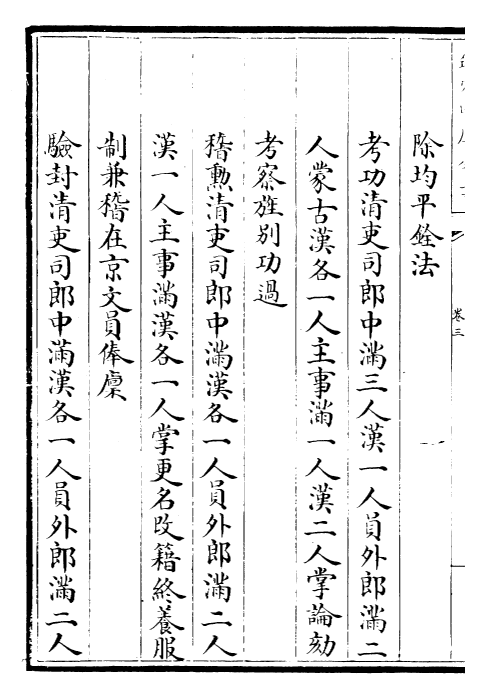 卷三
除均平銓法
考功清吏司郎中滿三人漢一人員外郎滿二
人蒙古漢各一人主事滿一人漢二人掌論劾
考察旌別功過
稽勲清吏司郎中滿漢各一人員外郎滿二人
漢一人主事滿漢各一人掌更名改籍終養服
制兼稽在京文員俸廩
驗封清吏司郎中滿漢各一人員外郎滿二人